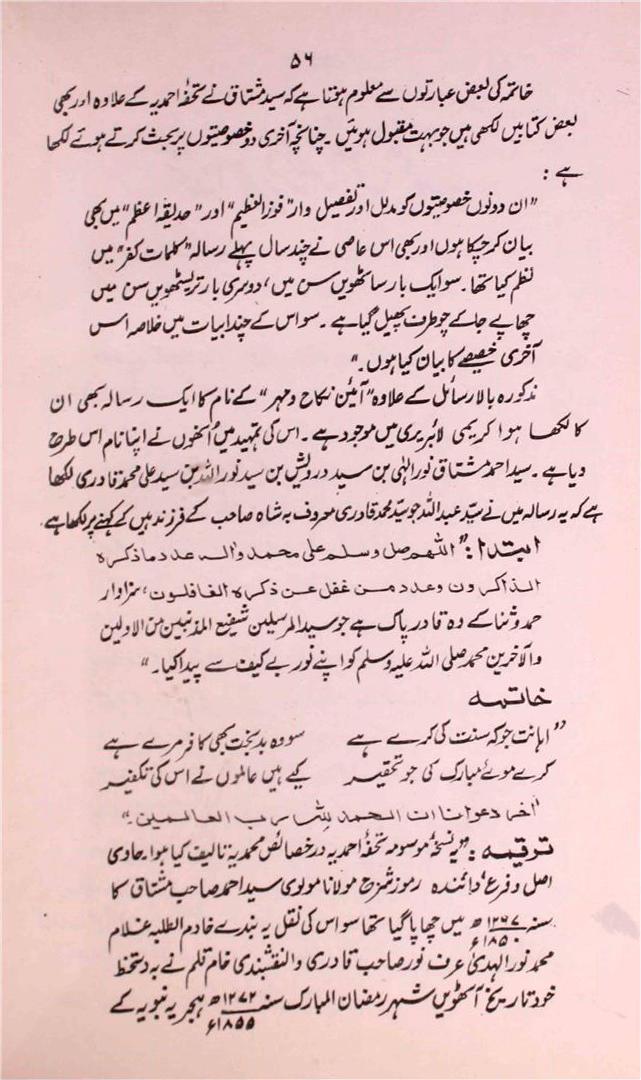 ۵۶
خاتمہ کی بعض عبارتوں سے معلوم ہوتا ہے کہ سید مشتاق نے تحفۂ احمدیہ کے علاوہ اور بھی
بعض کتابیں لکھی ہیں جو بہت مقبول ہوئیں۔ چنانچہ آخری دو خصوصیتوں پر بحث کرتے ہوئے لکھا
ہے :
"ان دونوں خصوصیتوں کو مدلل اور تفصیل وار "فوز العظیم" اور "حدیقۂ اعظم" میں بھی
بیان کر چکا ہوں اور بھی اس عاصی نے چند سال پہلے رسالہ "کلمات کفر" میں
نظم کیا تھا۔ سو ایک بار ساٹھویں سن میں، دوسری بار تریسٹھویں سن میں
چھاپے جا کے چو طرف پھیل گیا ہے۔ سو اس کے چند ابیات میں خلاصہ اس
آخری خصیصے کا بیان کیا ہوں۔"
مذکورہ بالا رسائل کے علاوہ "آئین نکاح و مہر" کے نام کا ایک رسالہ بھی ان
کا لکھا ہوا کریمی لائبریری میں موجود ہے۔ اس کی تمہید میں اُنھوں نے اپنا نام اس طرح
دیا ہے۔ سید احمد مشتاق نور الٰہی بن سید درویش بن سید نور اللہ بن سید علی محمد قادری لکھا
ہے کہ یہ رسالہ میں نے سیّد عبد اللہ جو سیّد محمد قادری معروف بہ شاہ صاحب کے فرزند ہیں کے کہنے پر لکھا ہے۔
ابتدا: "اللھم صل وسلم علی محمد والہ عدد ما ذکرہ
الذاکرون وعدد من غفل عن ذکرہ الغافلون، سزاوار
حمد و ثنا کے وہ قادر پاک ہے جو سید المرسلین شفیع المذنبین من الاولین
والآخرین محمد صلی اللہ علیہ وسلم کو اپنے نور بے کیف سے پیدا کیا۔"
خاتمہ
"اہانت جو کہ سنت کی کرے ہے سو وہ بدبخت بھی کافر مرے ہے
کرے موئے مبارک کی جو تحقیر کیے ہیں عالموں نے اس کی تکفیر
"آخر دعوانا ان الحمد للہ رب العالمین۔"
ترقیمہ: "یہ نسخۂ موسومہ تحفۂ احمدیہ در خصائص محمدیہ تالیف کیا ہوا، حاوی
اصل و فرع، دانندہ رموز شرح مولانا مولوی سید احمد صاحب مشتاق کا
سنہ ۱۲۶۷ھ / ۱۸۵۰ء میں چھاپا گیا تھا سو اس کی نقل یہ بندے خادم الطلبہ غلام
محمد نور الہدیٰ عرف نور صاحب قادری والنقشبندی خام قلم نے بہ دستخط
خود تاریخ آٹھویں شہر رمضان المبارک سنہ ۱۲۷۲ھ / ۱۸۵۵ء ہجریہ نبویہ کے